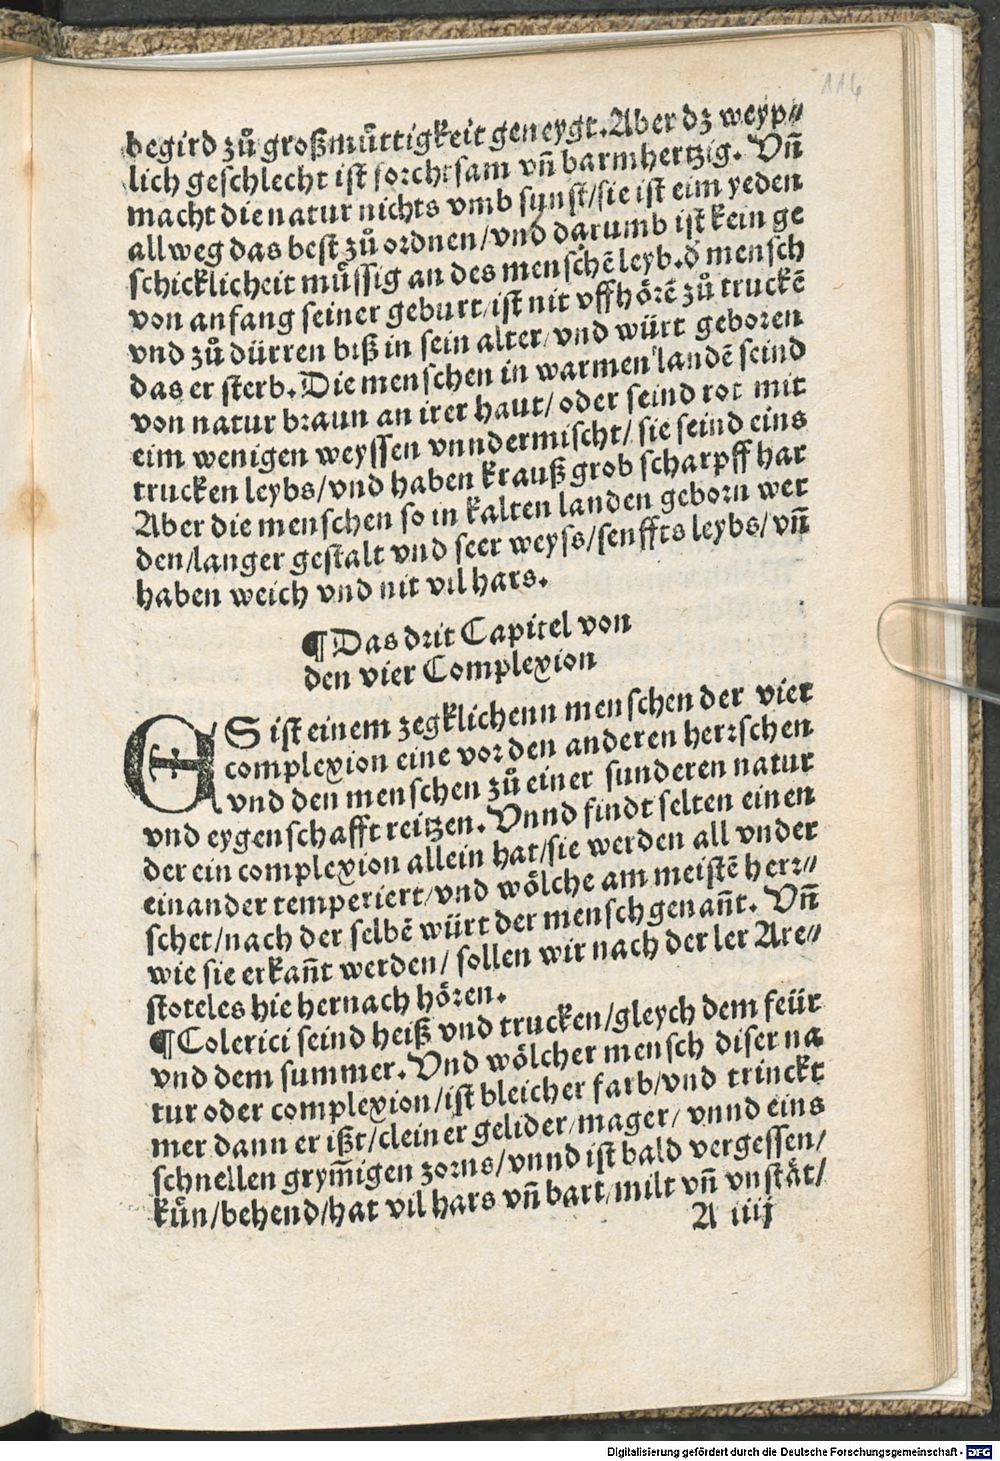 116
begird zů großmůttigkeit geneygt. Aber dz weyp⸗
lich geschlecht ist forchtsam vñ barmhertzig. Vñ
macht die natur nichts vmb sunst/sie ist eim yeden
allweg das best zů ordnen/vnd darumb ist kein ge
schicklicheit müssig an des menschẽ leyb. d̕ mensch
von anfang seiner geburt/ist nit vffhörẽ zů truckẽ
vnd zů dürren biß in sein alter/vnd würt geboren
das er sterb. Die menschen in warmen landẽ seind
von natur braun an irer haut/ oder seind rot mit
eim wenigen weyssen vnndermischt/ sie seind eins
trucken leybs/vnd haben krauß grob scharpff har
Aber die menschen so in kalten landen geborn wer
den/langer gestalt vnd seer weyss/senffts leybs/vñ
haben weich vnd nit vil hars.
¶ Das drit Capitel von
den vier Complexion
ES ist einem zegklichenn menschen der vier
complexion eine vor den anderen herrschen
vnd den menschen zů einer sunderen natur
vnd eygenschafft reitzen. Vnnd findt selten einen
der ein complexion allein hat/sie werden all vnder
einander temperiert/vnd wölche am meistẽ herr⸗
schet/nach der selbẽ würt der mensch genañt. Vñ
wie sie erkañt werden/ sollen wir nach der ler Are⸗
stoteles hie hernach hören.
¶ Colerici seind heiß vnd trucken/gleych dem feür
vnd dem summer. Vnd wölcher mensch diser na
tur oder complexion/ist bleicher farb/vnd trinckt
mer dann er ißt/cleiner gelider/mager/ vnnd eins
schnellen grym̃igen zorns/vnnd ist bald vergessen/
kün/behend/hat vil hars vñ bart/milt vñ vnstät/
A iiij
Digitalisierung gefördert durch die Deutsche Forschungsgemeinschaft - DFG